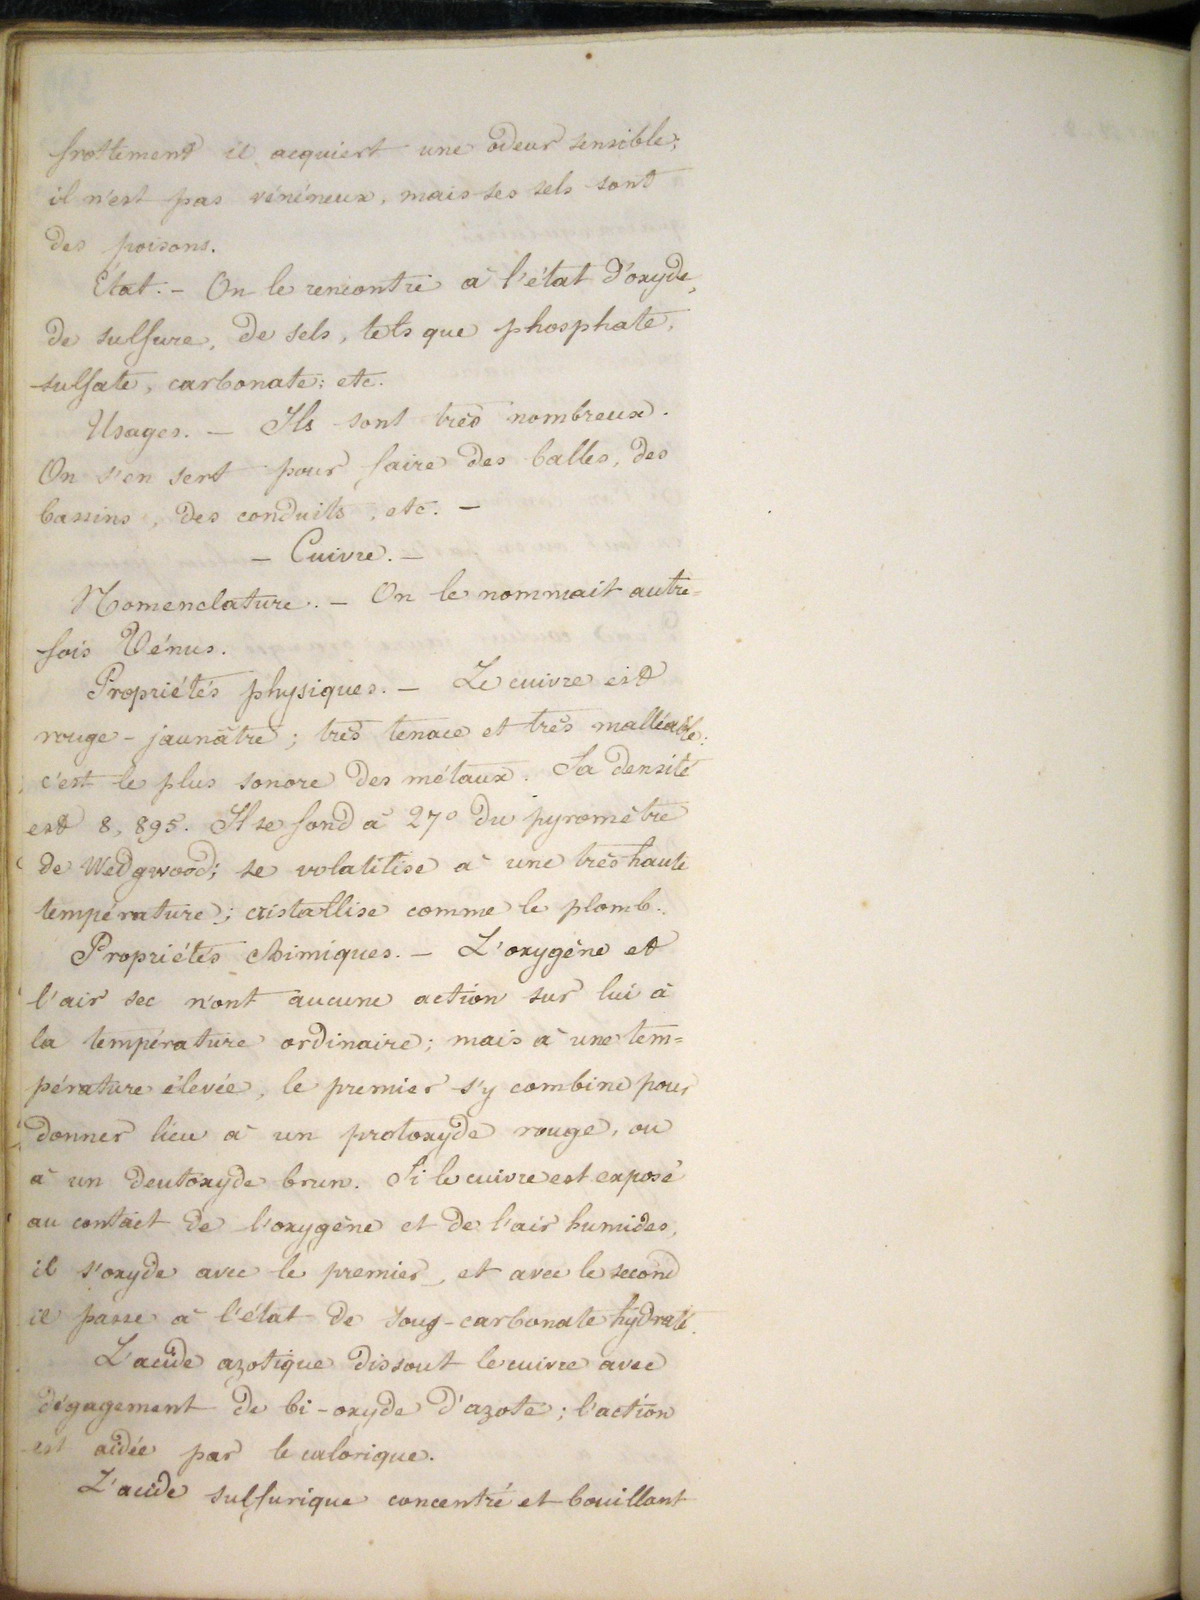 frottement il acquiert une odeur sensible;
il n'est pas vénéneux, mais ses sels sont
des poisons.
Etat. - On le rencontre à l'état d'oxyde,
de sulfure, de sels, tels que phosphate,
sulfate, carbonate; etc.
Usages. - Ils sont très nombreux.
On s'en sert pour faire des balles, des
bassins, des conduits, etc. -
- Cuivre. -
Nomenclature. - On le nommait autre=
fois Vénus.
Propriétés physiques. - Le cuivre est
rouge-jaunâtre; très tenace et très malléable;
c'est le plus sonore des métaux. Sa densité
est 8,895. Il se fond à 27° du pyromètre
de Wedgwood; se volatilise à une très haute
température; cristallise comme le plomb.
Propriétés chimiques. - L'oxygène et
l'air sec n'ont aucune action sur lui à
la température ordinaire; mais à une tem=
pérature élevée, le premier s'y combine pour
donner lieu à un protoxyde rouge, ou
à un deutoxyde brun. Si le cuivre est exposé
au contact de l'oxygène et de l'air humides,
il s'oxyde avec le premier, et avec le second
il passe à l'état de sous-carbonate hydraté.
L'acide azotique dissout le cuivre avec
dégagement de bi-oxyde d'azote; l'action
est aidée par le calorique.
L'acide sulfurique concentré et bouillant